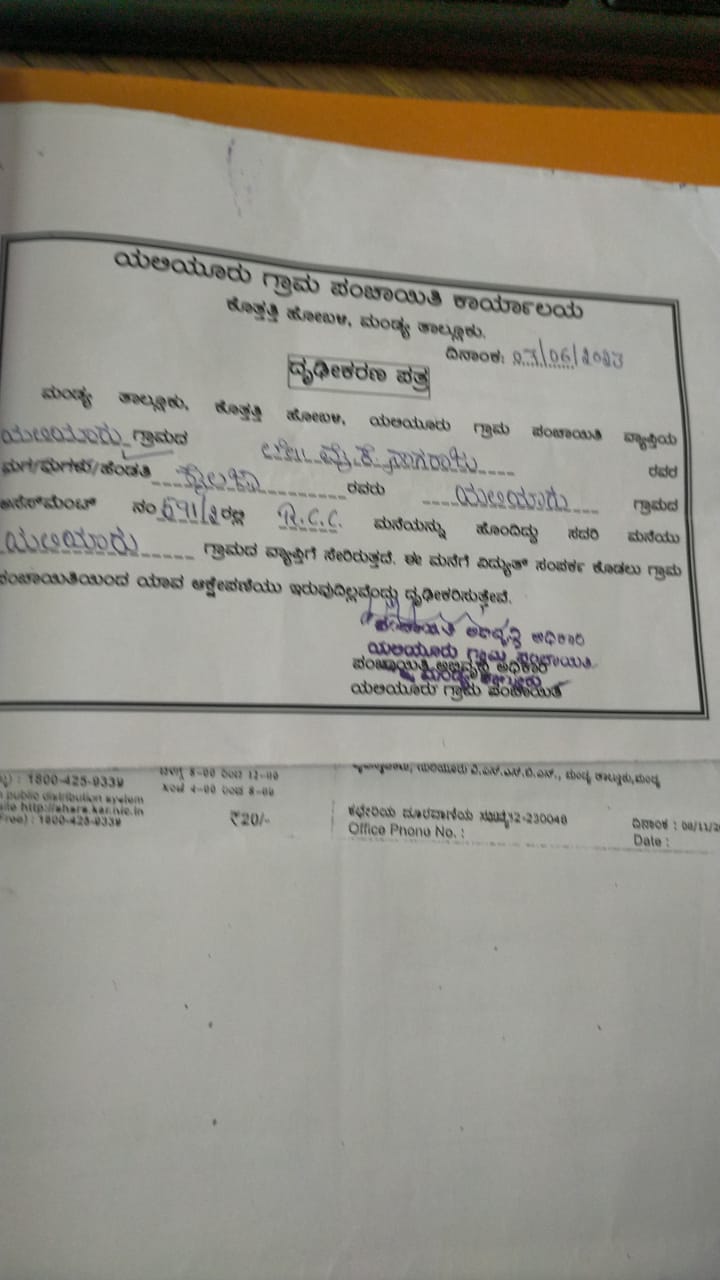 ಯಲಿಯೂರು ಗ್ರಾಮ ಪಂಚಾಯಿತಿ ಕಾರ್ಯಾಲಯ
ಕೊತ್ತತ್ತಿ ಹೋಬಳಿ, ಮಂಡ್ಯ ತಾಲ್ಲೂಕು.
ದಿನಾಂಕ: 03/06/2023
ದೃಢೀಕರಣ ಪತ್ರ
ಮಂಡ್ಯ ತಾಲ್ಲೂಕು, ಕೊತ್ತತ್ತಿ ಹೋಬಳಿ, ಯಲಿಯೂರು ಗ್ರಾಮ ಪಂಚಾಯಿತಿ ವ್ಯಾಪ್ತಿಯ
ಯಲಿಯೂರು ಗ್ರಾಮದ ಲೇ|| ವೈ.ಕೆ.ನಾಗರಾಜು ರವರ
ಮಗ/ಮಗಳು/ಹೆಂಡತಿ ರವರು ಯಲಿಯೂರು ಗ್ರಾಮದ
ಅಸೆಸ್‌ಮೆಂಟ್ ನಂ 691/2 ರಲ್ಲಿ R.C.C. ಮನೆಯನ್ನು ಹೊಂದಿದ್ದು ಸದರಿ ಮನೆಯು
ಯಲಿಯೂರು ಗ್ರಾಮದ ವ್ಯಾಪ್ತಿಗೆ ಸೇರಿರುತ್ತದೆ. ಈ ಮನೆಗೆ ವಿದ್ಯುತ್ ಸಂಪರ್ಕ ಕೊಡಲು ಗ್ರಾಮ
ಪಂಚಾಯಿತಿಯಿಂದ ಯಾವ ಆಕ್ಷೇಪಣೆಯು ಇರುವುದಿಲ್ಲವೆಂದು ದೃಢೀಕರಿಸುತ್ತೇವೆ.
ಪಂಚಾಯಿತಿ ಅಭಿವೃದ್ಧಿ ಅಧಿಕಾರಿ
ಯಲಿಯೂರು ಗ್ರಾಮ ಪಂಚಾಯಿತಿ
ಪಂಚಾಯಿತಿ ಅಭಿವೃದ್ಧಿ ಅಧಿಕಾರಿ
ಮಂಡ್ಯ ತಾಲ್ಲೂಕು
ಯಲಿಯೂರು ಗ್ರಾಮ ಪಂಚಾಯಿತಿ
: 1800-425-9339
public distribution system
http://ahara.kar.nic.in
Free) : 1800-425-9339
ಬೆಳಿಗ್ಗೆ 8-00 ರಿಂದ 12-00
ಸಂಜೆ 4-00 ರಿಂದ 8-00
₹20/-
ಯಲಿಯೂರು ವಿ.ಎಸ್.ಎಸ್.ಬಿ.ಎನ್., ಮಂಡ್ಯ ತಾಲ್ಲೂಕು,ಮಂಡ್ಯ
ಕಛೇರಿಯ ದೂರವಾಣಿಯ ಸಂಖ್ಯೆ 12-230048
Office Phone No. :
ದಿನಾಂಕ : 08/11/20
Date :